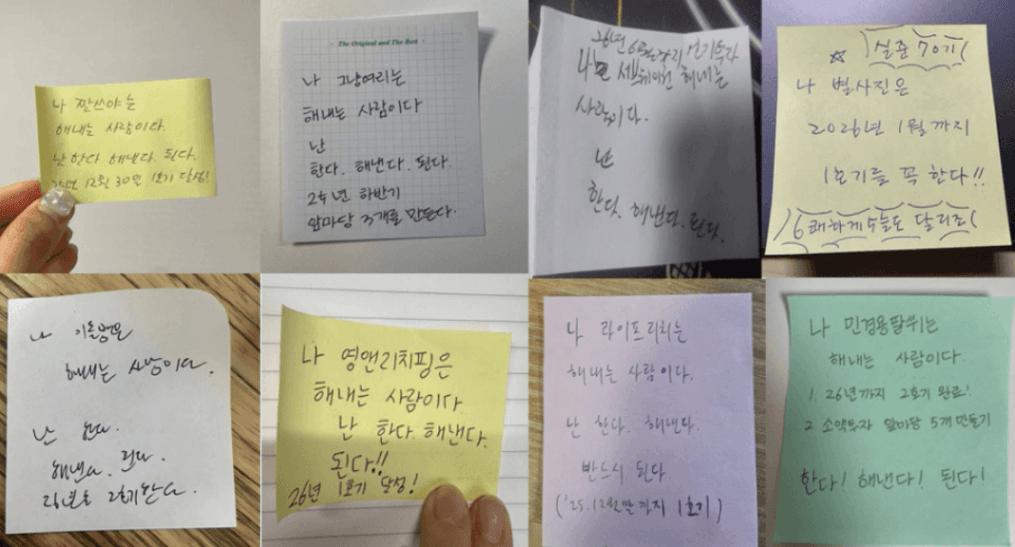 나 짠쓰야는
해내는 사람이다.
난 한다. 해낸다. 된다.
25년 12월 30일 1호기 달성!
The Original and The Best
나 그냥여리는
해내는 사람이다
난
한다. 해낸다. 된다.
2년 하반기
앞마당 3개를 만든다.
26년 6월
해내는
사람이다.
난
한다. 해낸다. 된다.
☆ 실준 70기
나 별사진은
2026년 1월까지
1호기를 꼭 한다!!
6쾌하게 오늘도 달리조
나
해내는 사람이다.
난 한다.
해낸다. 된다.
2호기
나 영앤리치핑은
해내는 사람이다.
난 한다. 해낸다.
된다!!
26년 1호기 달성!
나 라이프리치는
해내는 사람이다.
난 한다. 해낸다.
반드시 된다
('25.12월말까지 1호기)
나 민경용팔뚝는
해내는 사람이다.
1. 26년까지 2호기 완료!
2. 소액투자 앞마당 5개 만들기
한다! 해낸다! 된다!